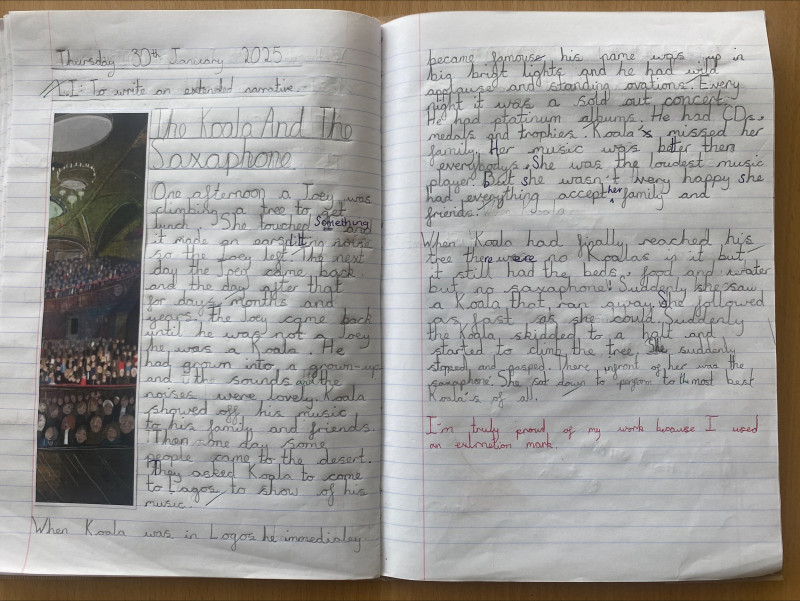 Thursday 30th January 2025
L.I: To write an extended narrative.
The Koala And The
Saxaphone
One afternoon a Joey was
climbing a tree to get
lunch. She touched Something and
it made an earsplitting noise
so the Joey left. The next
day the Joey came back.
and the day after that
for days, months and
years, the Joey came back
until he was not a Joey
he was a Koala. He
had grown into a grown-up
and the sounds and the
noises were lovely. Koala
showed off his music
to his family and friends.
Then one day some
people came to the desert.
They asked Koala to come
to Lagos, to show of his
music.
When Koala was in Logos he immediatley
became famouse his name was up in
big brigt lights and he had wild
applause and standing ovations. Every
night it was a sold out concert.
He had platinum albums. He had CDs,
medals and trophies. Koala's missed her
family. Her music was better then
everybodys. She was the loudest music
player. But she wasn't very happy she
had everything accept her family and
friends.
When Koala had finally reached his
tree there were no Koalas in it but
it still had the beds, food and water
but no saxaphone! Suddenly she saw
a Koala that ran away. She followed
as fast as she could. Suddenly
the Koala skidded to a halt and
started to climb the tree. She suddenly
stoped and gasped. There infront of her was the
saxaphone. She sat down to perform to the most best
Koala's of all.
I'm truly proud of my work because I used
an exlmation mark.